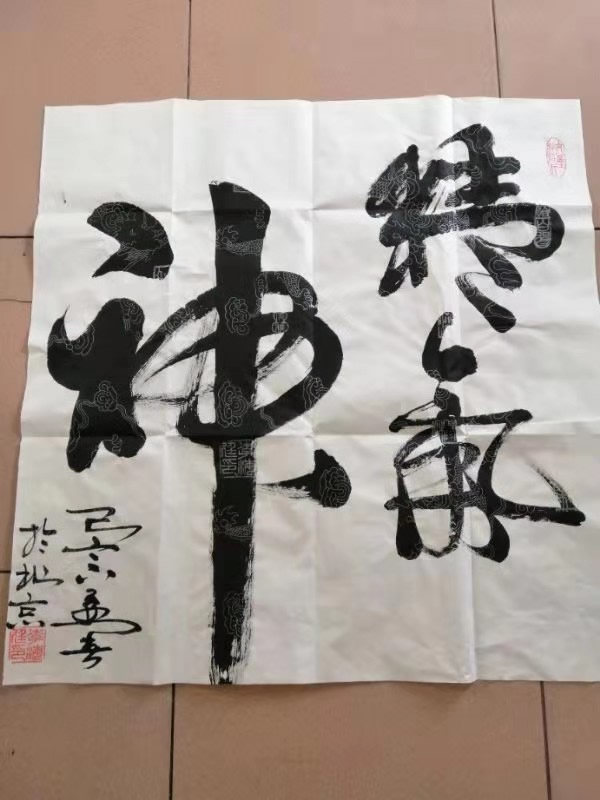 精氣
神
己亥孟春
於北京